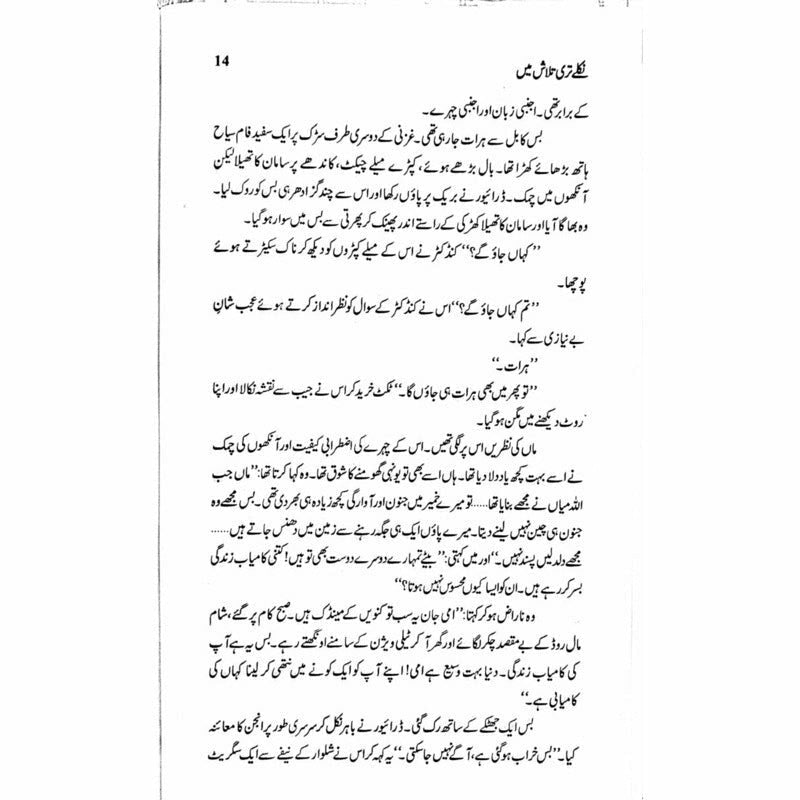 14
نکلے تری تلاش میں
کے برابر تھی۔ اجنبی زبان اور اجنبی چہرے۔
بس کابل سے ہرات جا رہی تھی۔ غزنی کے دوسری طرف سڑک پر ایک سفید فام سیاح
ہاتھ بڑھائے کھڑا تھا۔ بال بڑھے ہوئے، کپڑے میلے چیکٹ، کاندھے پر سامان کا تھیلا لیکن
آنکھوں میں چمک۔ ڈرائیور نے بریک پر پاؤں رکھا اور اس سے چند گز ادھر ہی بس کو روک لیا۔
وہ بھاگا آیا اور سامان کا تھیلا کھڑکی کے راستے اندر پھینک کر پھرتی سے بس میں سوار ہو گیا۔
’’کہاں جاؤ گے؟‘‘ کنڈکٹر نے اس کے میلے کپڑوں کو دیکھ کر ناک سکیڑتے ہوئے
پوچھا۔
’’تم کہاں جاؤ گے؟‘‘ اس نے کنڈکٹر کے سوال کو نظر انداز کرتے ہوئے عجب شانِ
بے نیازی سے کہا۔
’’ہرات۔‘‘
’’تو پھر میں بھی ہرات ہی جاؤں گا۔‘‘ ٹکٹ خرید کر اس نے جیب سے نقشہ نکالا اور اپنا
روٹ دیکھنے میں مگن ہو گیا۔
ماں کی نظریں اس پر لگی تھیں۔ اس کے چہرے کی اضطرابی کیفیت اور آنکھوں کی چمک
نے اسے بہت کچھ یاد دلا دیا تھا۔ ہاں اسے بھی تو یونہی گھومنے کا شوق تھا۔ وہ کہا کرتا تھا: ’’ماں جب
اللہ میاں نے مجھے بنایا تھا..... تو میرے خمیر میں جنون اور آوارگی کچھ زیادہ ہی بھر دی تھی۔ بس مجھے وہ
جنون ہی چین نہیں لینے دیتا۔ میرے پاؤں ایک ہی جگہ رہنے سے زمین میں دھنس جاتے ہیں......
مجھے دلدلیں پسند نہیں۔‘‘ اور میں کہتی: ’’بیٹے تمہارے دوسرے دوست بھی تو ہیں! کتنی کامیاب زندگی
بسر کر رہے ہیں۔ ان کو ایسا کیوں محسوس نہیں ہوتا؟‘‘
وہ ناراض ہو کر کہتا: ’’امی جان یہ سب تو کنویں کے مینڈک ہیں۔ صبح کام پر گئے، شام
مال روڈ کے بے مقصد چکر لگائے اور گھر آ کر ٹیلی ویژن کے سامنے اونگھتے رہے۔ بس یہ ہے آپ
کی کامیاب زندگی۔ دنیا بہت وسیع ہے امی! اپنے آپ کو ایک کونے میں نتھی کر لینا کہاں کی
کامیابی ہے۔‘‘
بس ایک جھٹکے کے ساتھ رک گئی۔ ڈرائیور نے باہر نکل کر سرسری طور پر انجن کا معائنہ
کیا۔ ’’بس خراب ہو گئی ہے، آگے نہیں جا سکتی۔‘‘ یہ کہہ کر اس نے شلوار کے نیفے سے ایک سگریٹ